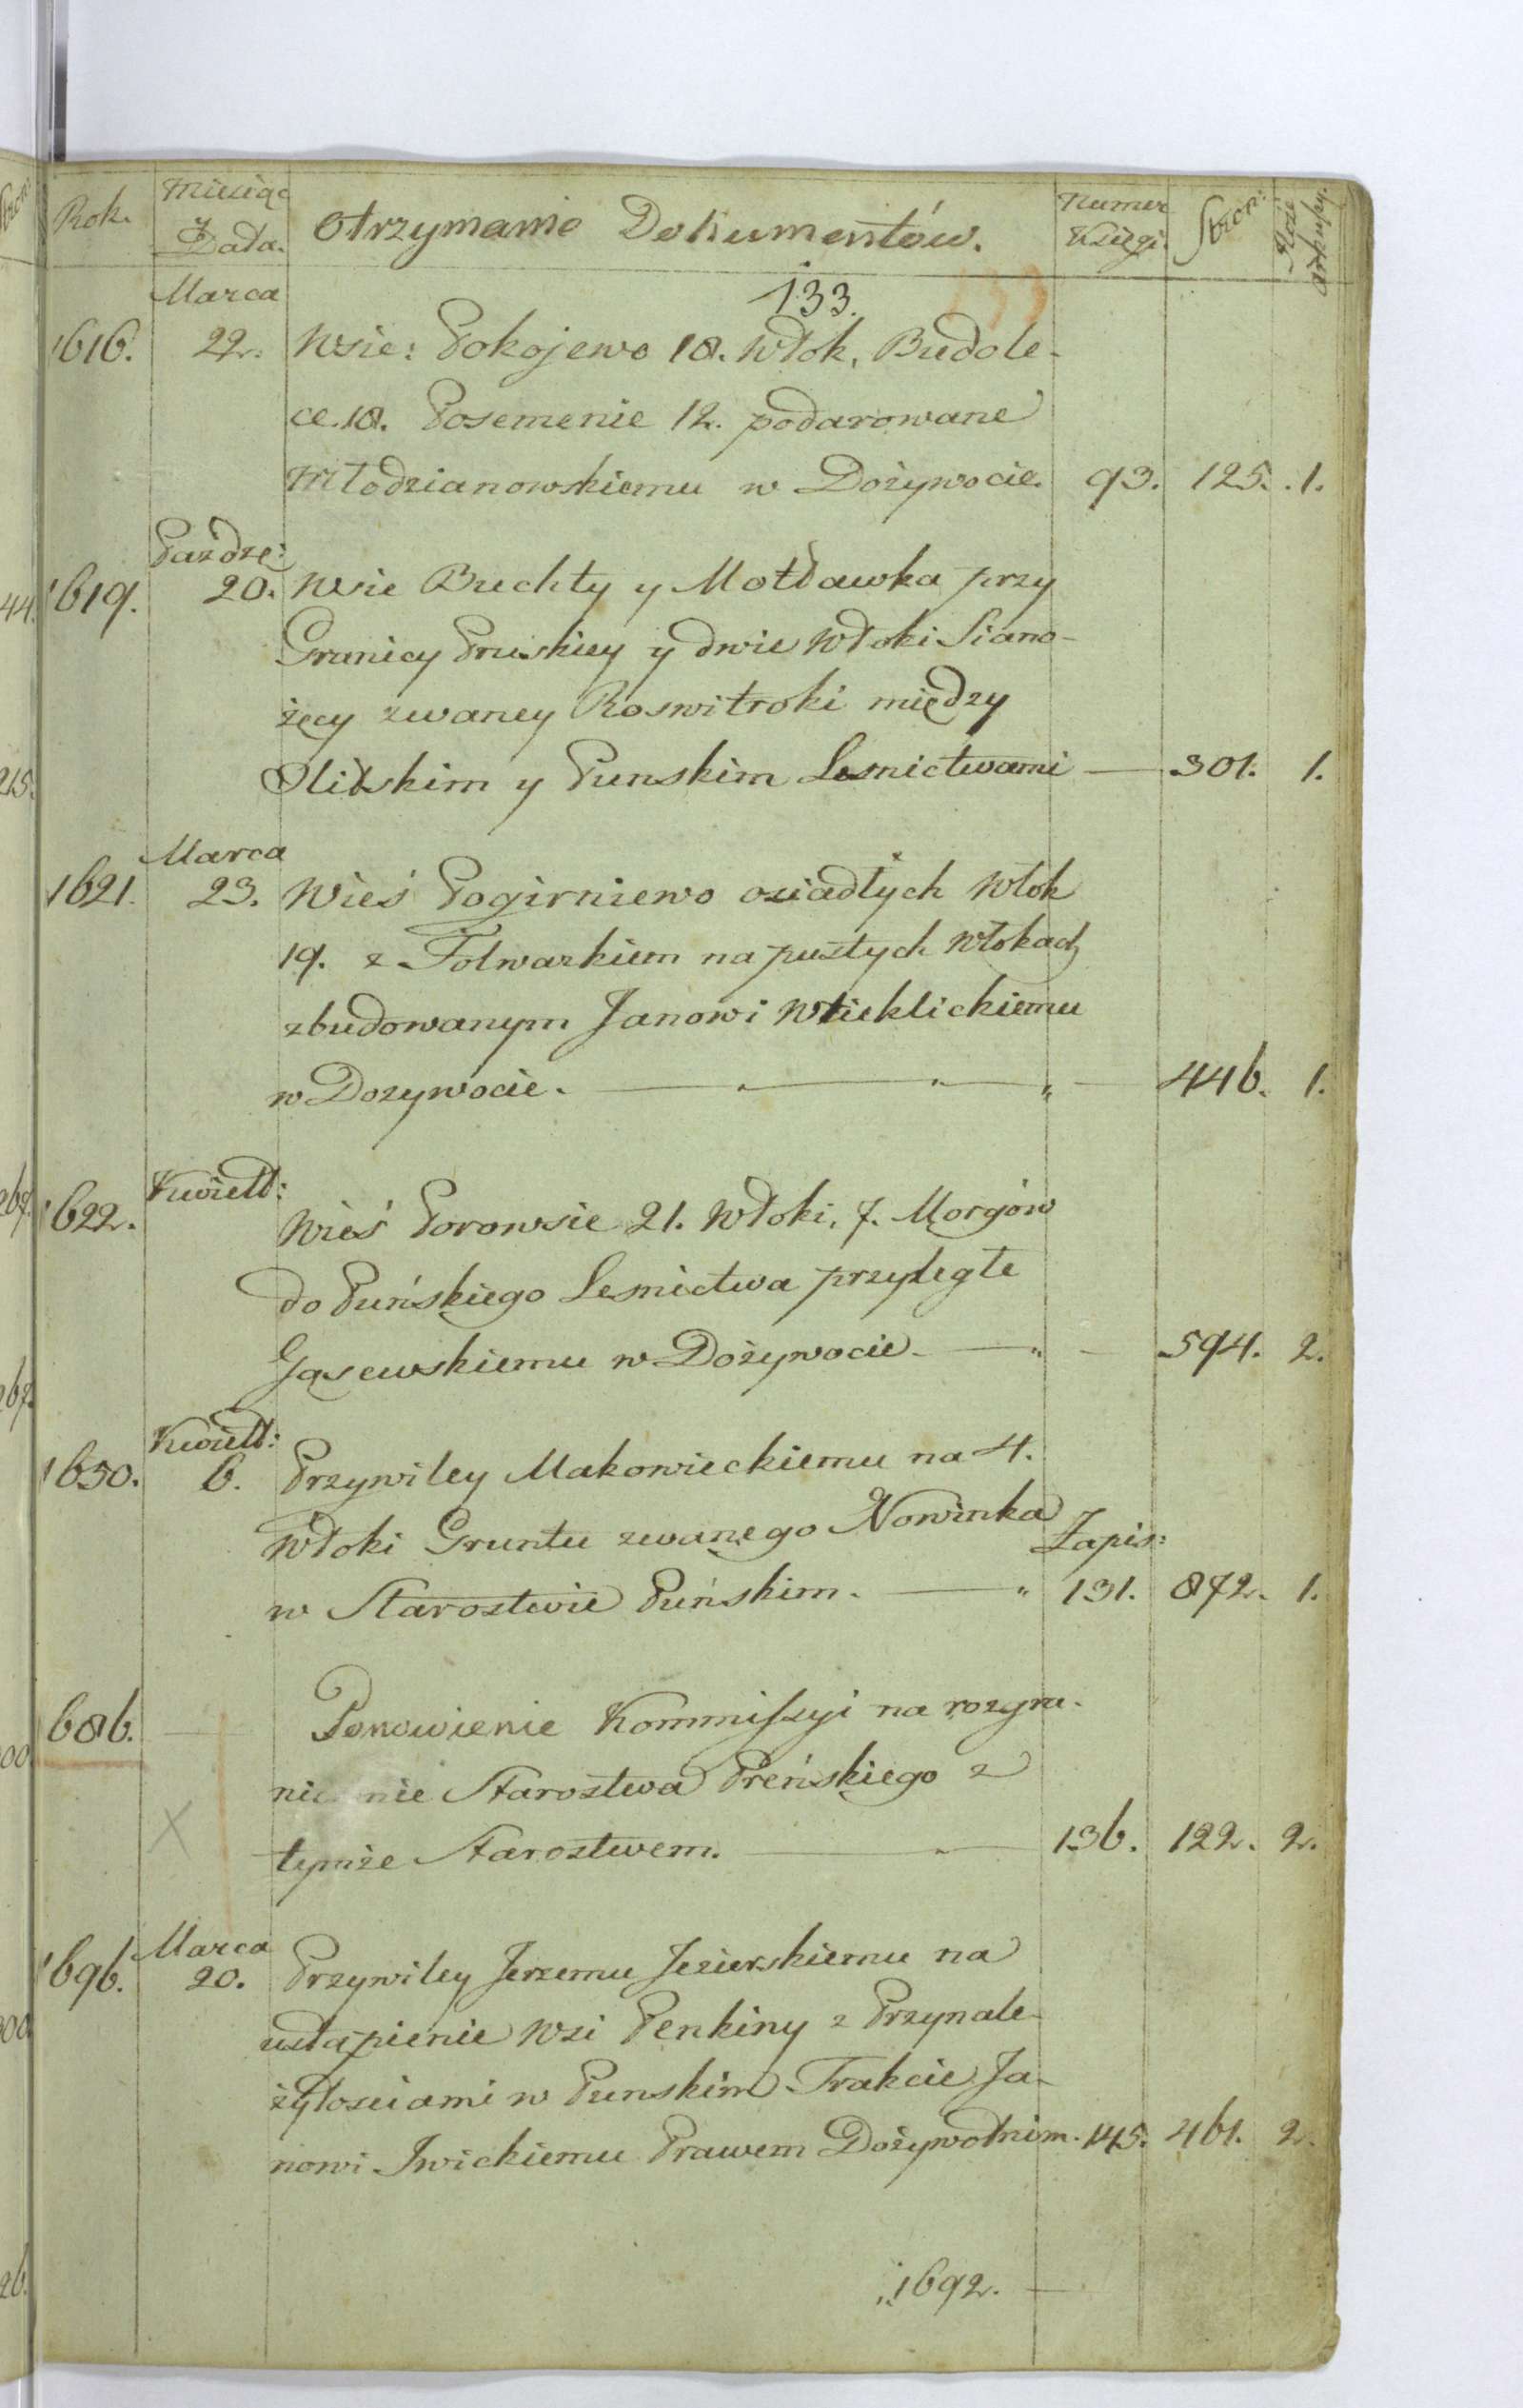 Rok. Miesiąc y Data. Otrzymanie Dokumentów. Numer Księgi. Stron:
133.
Marca
1616. 22. Wsie: Pokojewo 18. Włok, Budole-
ce. 18. Posemenie 12. podarowane
Młodzianowskiemu w Dożywocie. 93. 125. 1.
Pazdze:
1619. 20. Wsie Buchty y Motławka przy
Granicy Pruskiey y dwie Włoki Siano-
żęcy zwaney Roswitroki między
Olitskim y Punskim Lesnictwami — 301. 1.
Marca
1621. 23. Wieś Pogirniewo osiadłych Włok
19. z Folwarkiem na pustych Włokach
zbudowanym Janowi Wieklickiemu
w Dozywocie. — " — " — " — 446. 1.
Kwiett:
1622. Wieś Porowsie 21. Włoki, 7. Morgów
do Puńskiego Lesnictwa przyległe
Gąsewskiemu w Dożywocie. — " — 594. 2.
Kwiett:
1650. 6. Przywiley Makowieckiemu na 4.
Włoki Gruntu zwanego Nowinka Zapis:
w Starostwie Puńskim. — " 131. 872. 1.
686. — Ponowienie Kommiszyi na rozgra-
nie Starostwa Preńskiego z
tymże Starostwem. — " — 136. 122. 2.
Marca
1696. 20. Przywiley Jerzemu Jezierskiemu na
ustąpienie Wsi Penkiny z Przynale-
żytosciami w Punskim Trakcie Ja-
nowi Iwickiemu Prawem Dożywotnim. 145. 461. 2.
„1692. —